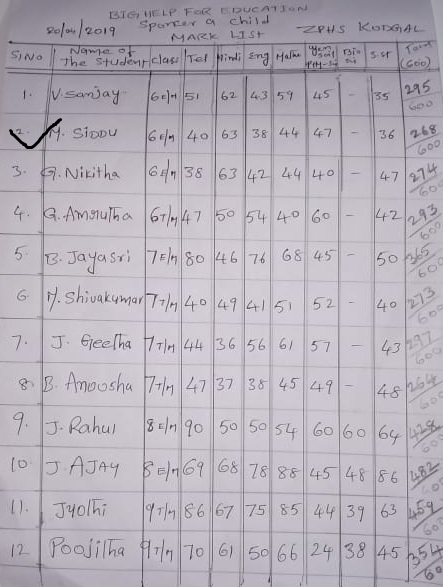 BIG HELP FOR EDUCATION
20/04/2019 Sponcer a child ZPHS KODGAL
MARK LIST
Sl.No Name of The Student Class Tel Hindi Eng Maths Gen Sci/ PH-Sci Bio Sci S.st Total (600)
1. V. Sanjay 6E/M 51 62 43 59 45 - 35 295/600
2. M. SIDDU 6E/M 40 63 38 44 47 - 36 268/600
3. G. Nikitha 6E/M 38 63 42 44 40 - 47 274/60
4. G. Amrutha 6T/M 47 50 54 40 60 - 42 293/600
5. B. Jayasri 7E/M 80 46 76 68 45 - 50 365/600
6. M. Shivakumar 7T/M 40 49 41 51 52 - 40 273/600
7. J. Geetha 7T/M 44 36 56 61 57 - 43 297/600
8. B. Anousha 7T/M 47 37 38 45 49 - 48 264/600
9. J. Rahul 8E/M 90 50 50 54 60 60 64 428/600
10. J. AJAY 8E/M 69 68 78 88 45 48 86 482/600
11. Jyothi 9T/M 86 67 75 85 44 39 63 459/60
12. Poojitha 9T/M 70 61 50 66 24 38 45 354/60